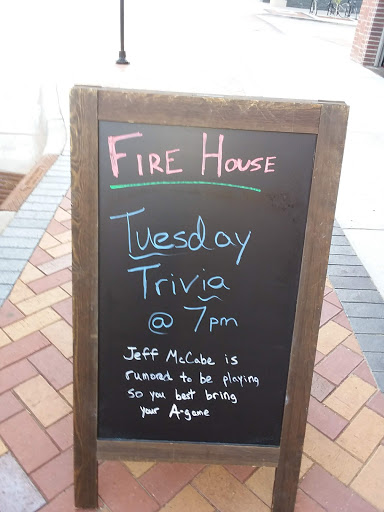 FIRE HOUSE
Tuesday
Trivia
@ 7pm
Jeff McCabe is
rumored to be playing
so you best bring
your A-game